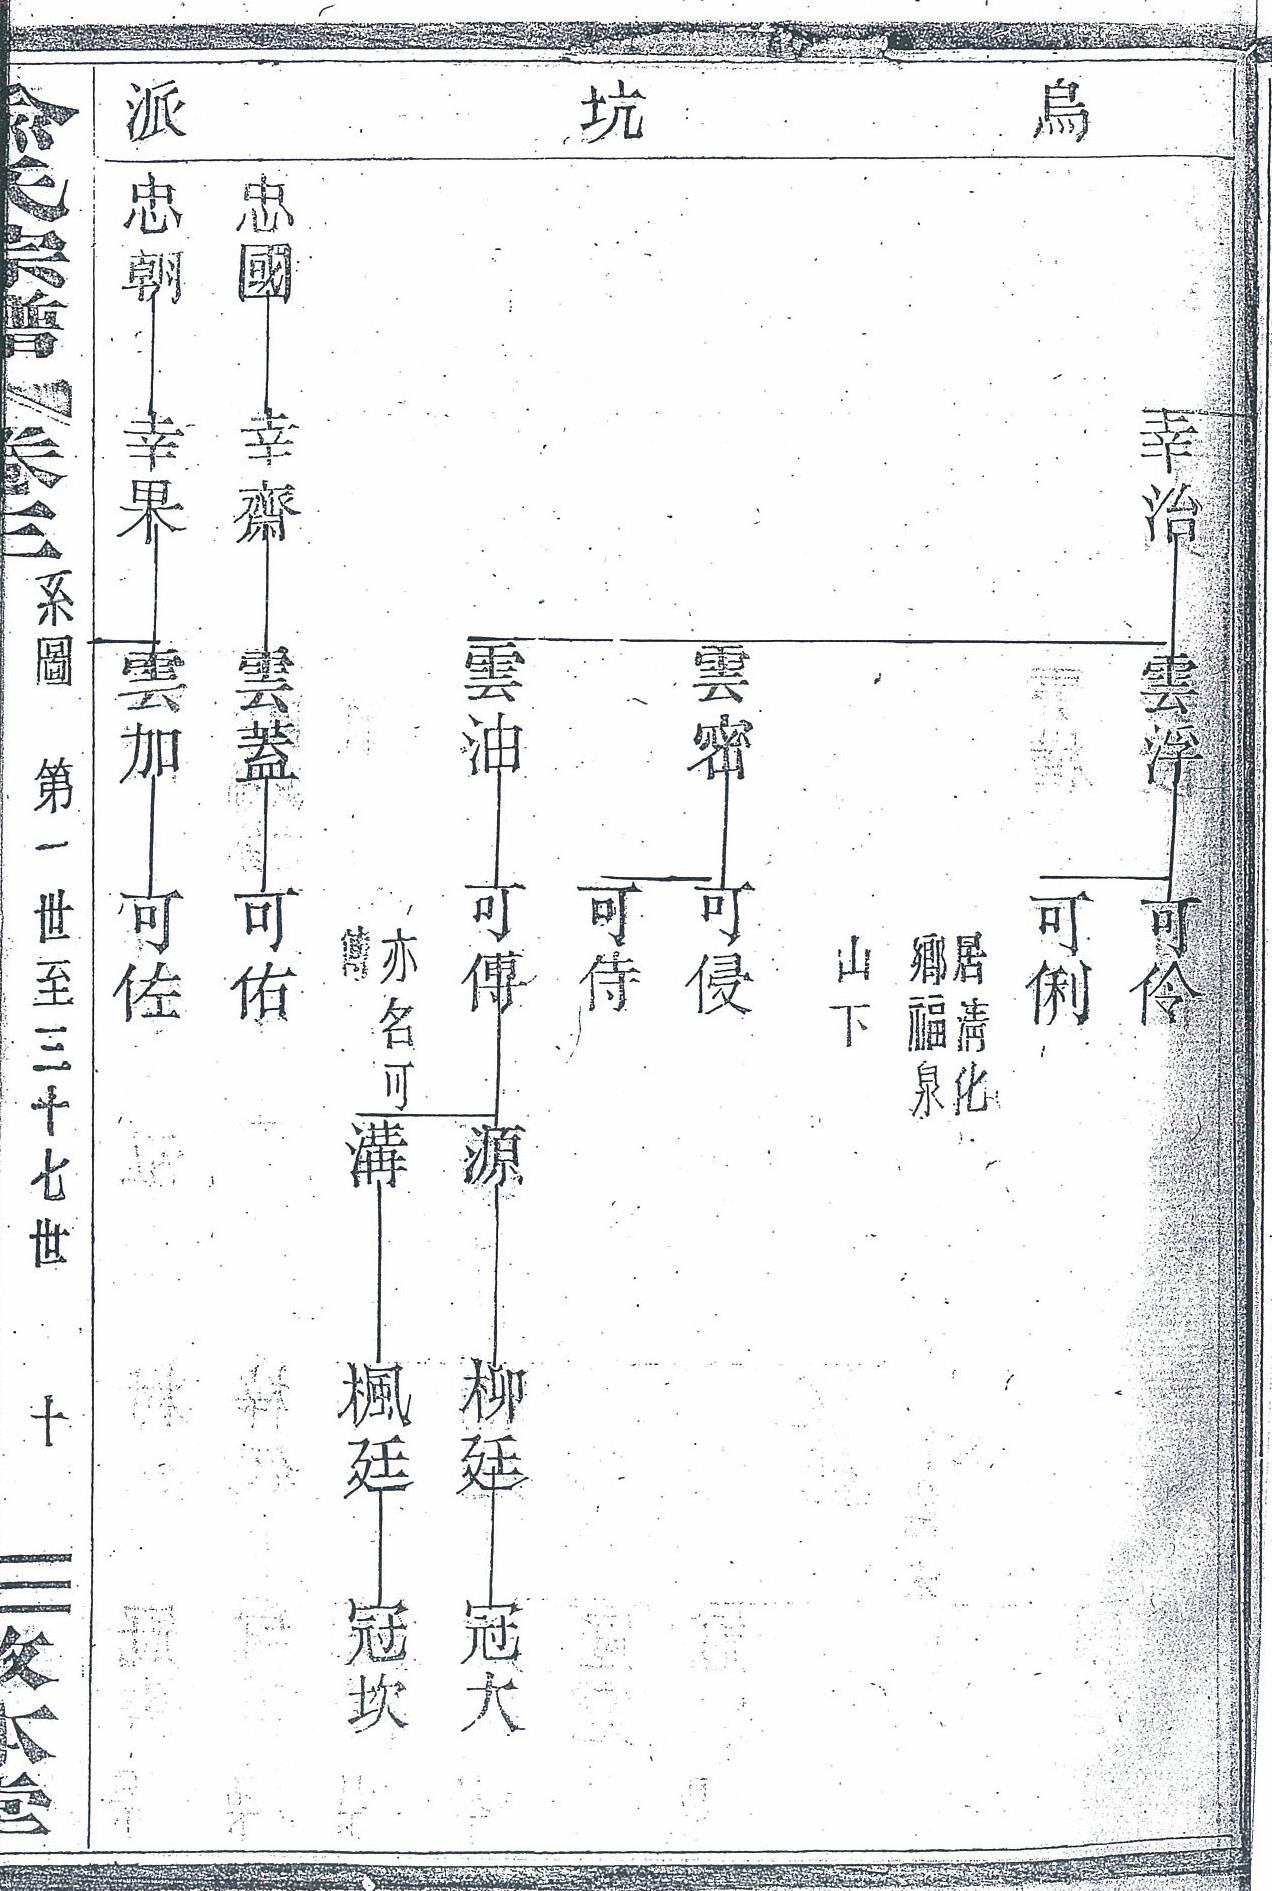 烏坑派
幸治
雲浮
可伶
可俐
居清化
鄉福泉
山下
雲密
可侵
可侍
雲油
可傳
亦名可
源
柳廷
冠大
溝
楓廷
冠坎
忠國
幸齋
雲蓋
可佑
忠朝
幸果
雲加
可佐
俞氏宗譜
卷三 系圖 第一世至三十七世 十
敦本堂